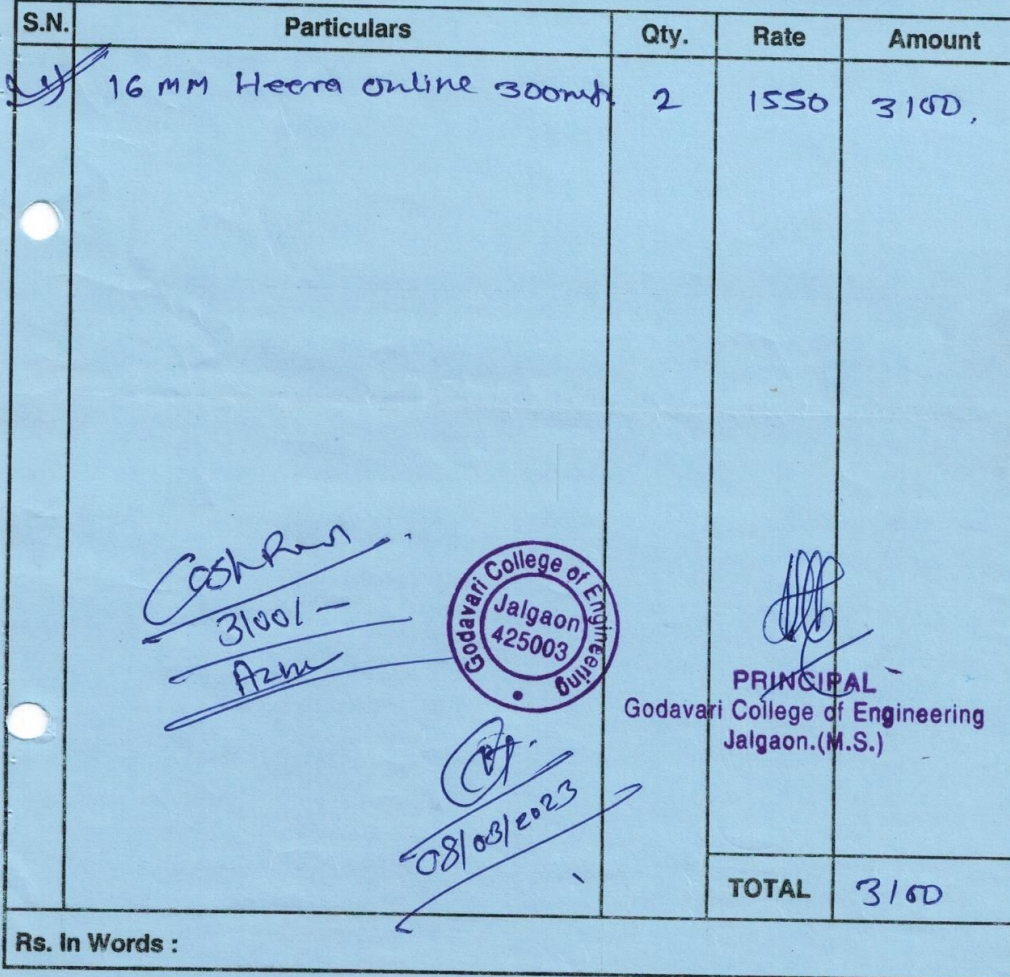 S.N. Particulars Qty. Rate Amount
16 MM Heera online 300mtr 2 1550 3100.
Cash
3100/-
Godavari College of Engineering
Jalgaon
425003
PRINCIPAL
Godavari College of Engineering
Jalgaon.(M.S.)
08/03/2023
TOTAL 3100
Rs. In Words :